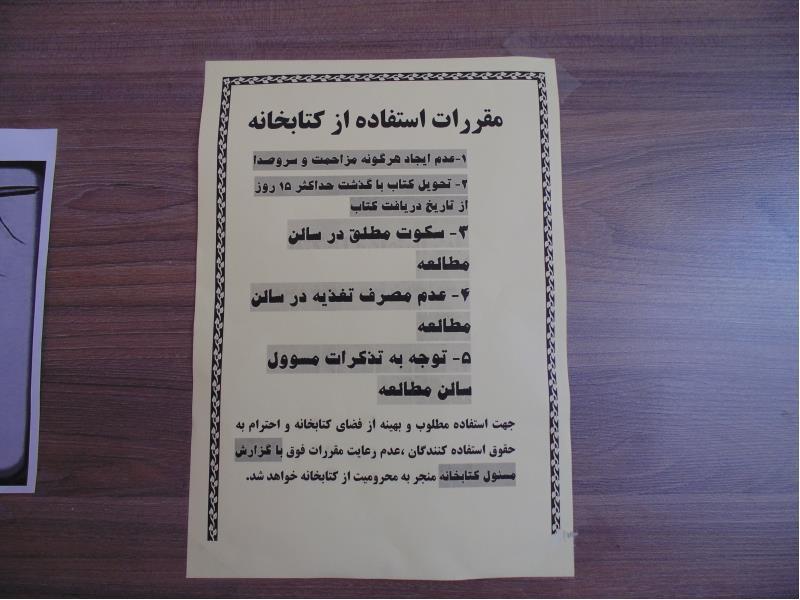 مقررات استفاده از کتابخانه
۱-عدم ایجاد هرگونه مزاحمت و سروصدا
۲- تحویل کتاب با گذشت حداکثر ۱۵ روز
از تاریخ دریافت کتاب
۳- سکوت مطلق در سالن
مطالعه
۴- عدم مصرف تغذیه در سالن
مطالعه
۵- توجه به تذکرات مسوول
سالن مطالعه
جهت استفاده مطلوب و بهینه از فضای کتابخانه و احترام به
حقوق استفاده کنندگان ،عدم رعایت مقررات فوق با گزارش
مسئول کتابخانه منجر به محرومیت از کتابخانه خواهد شد.